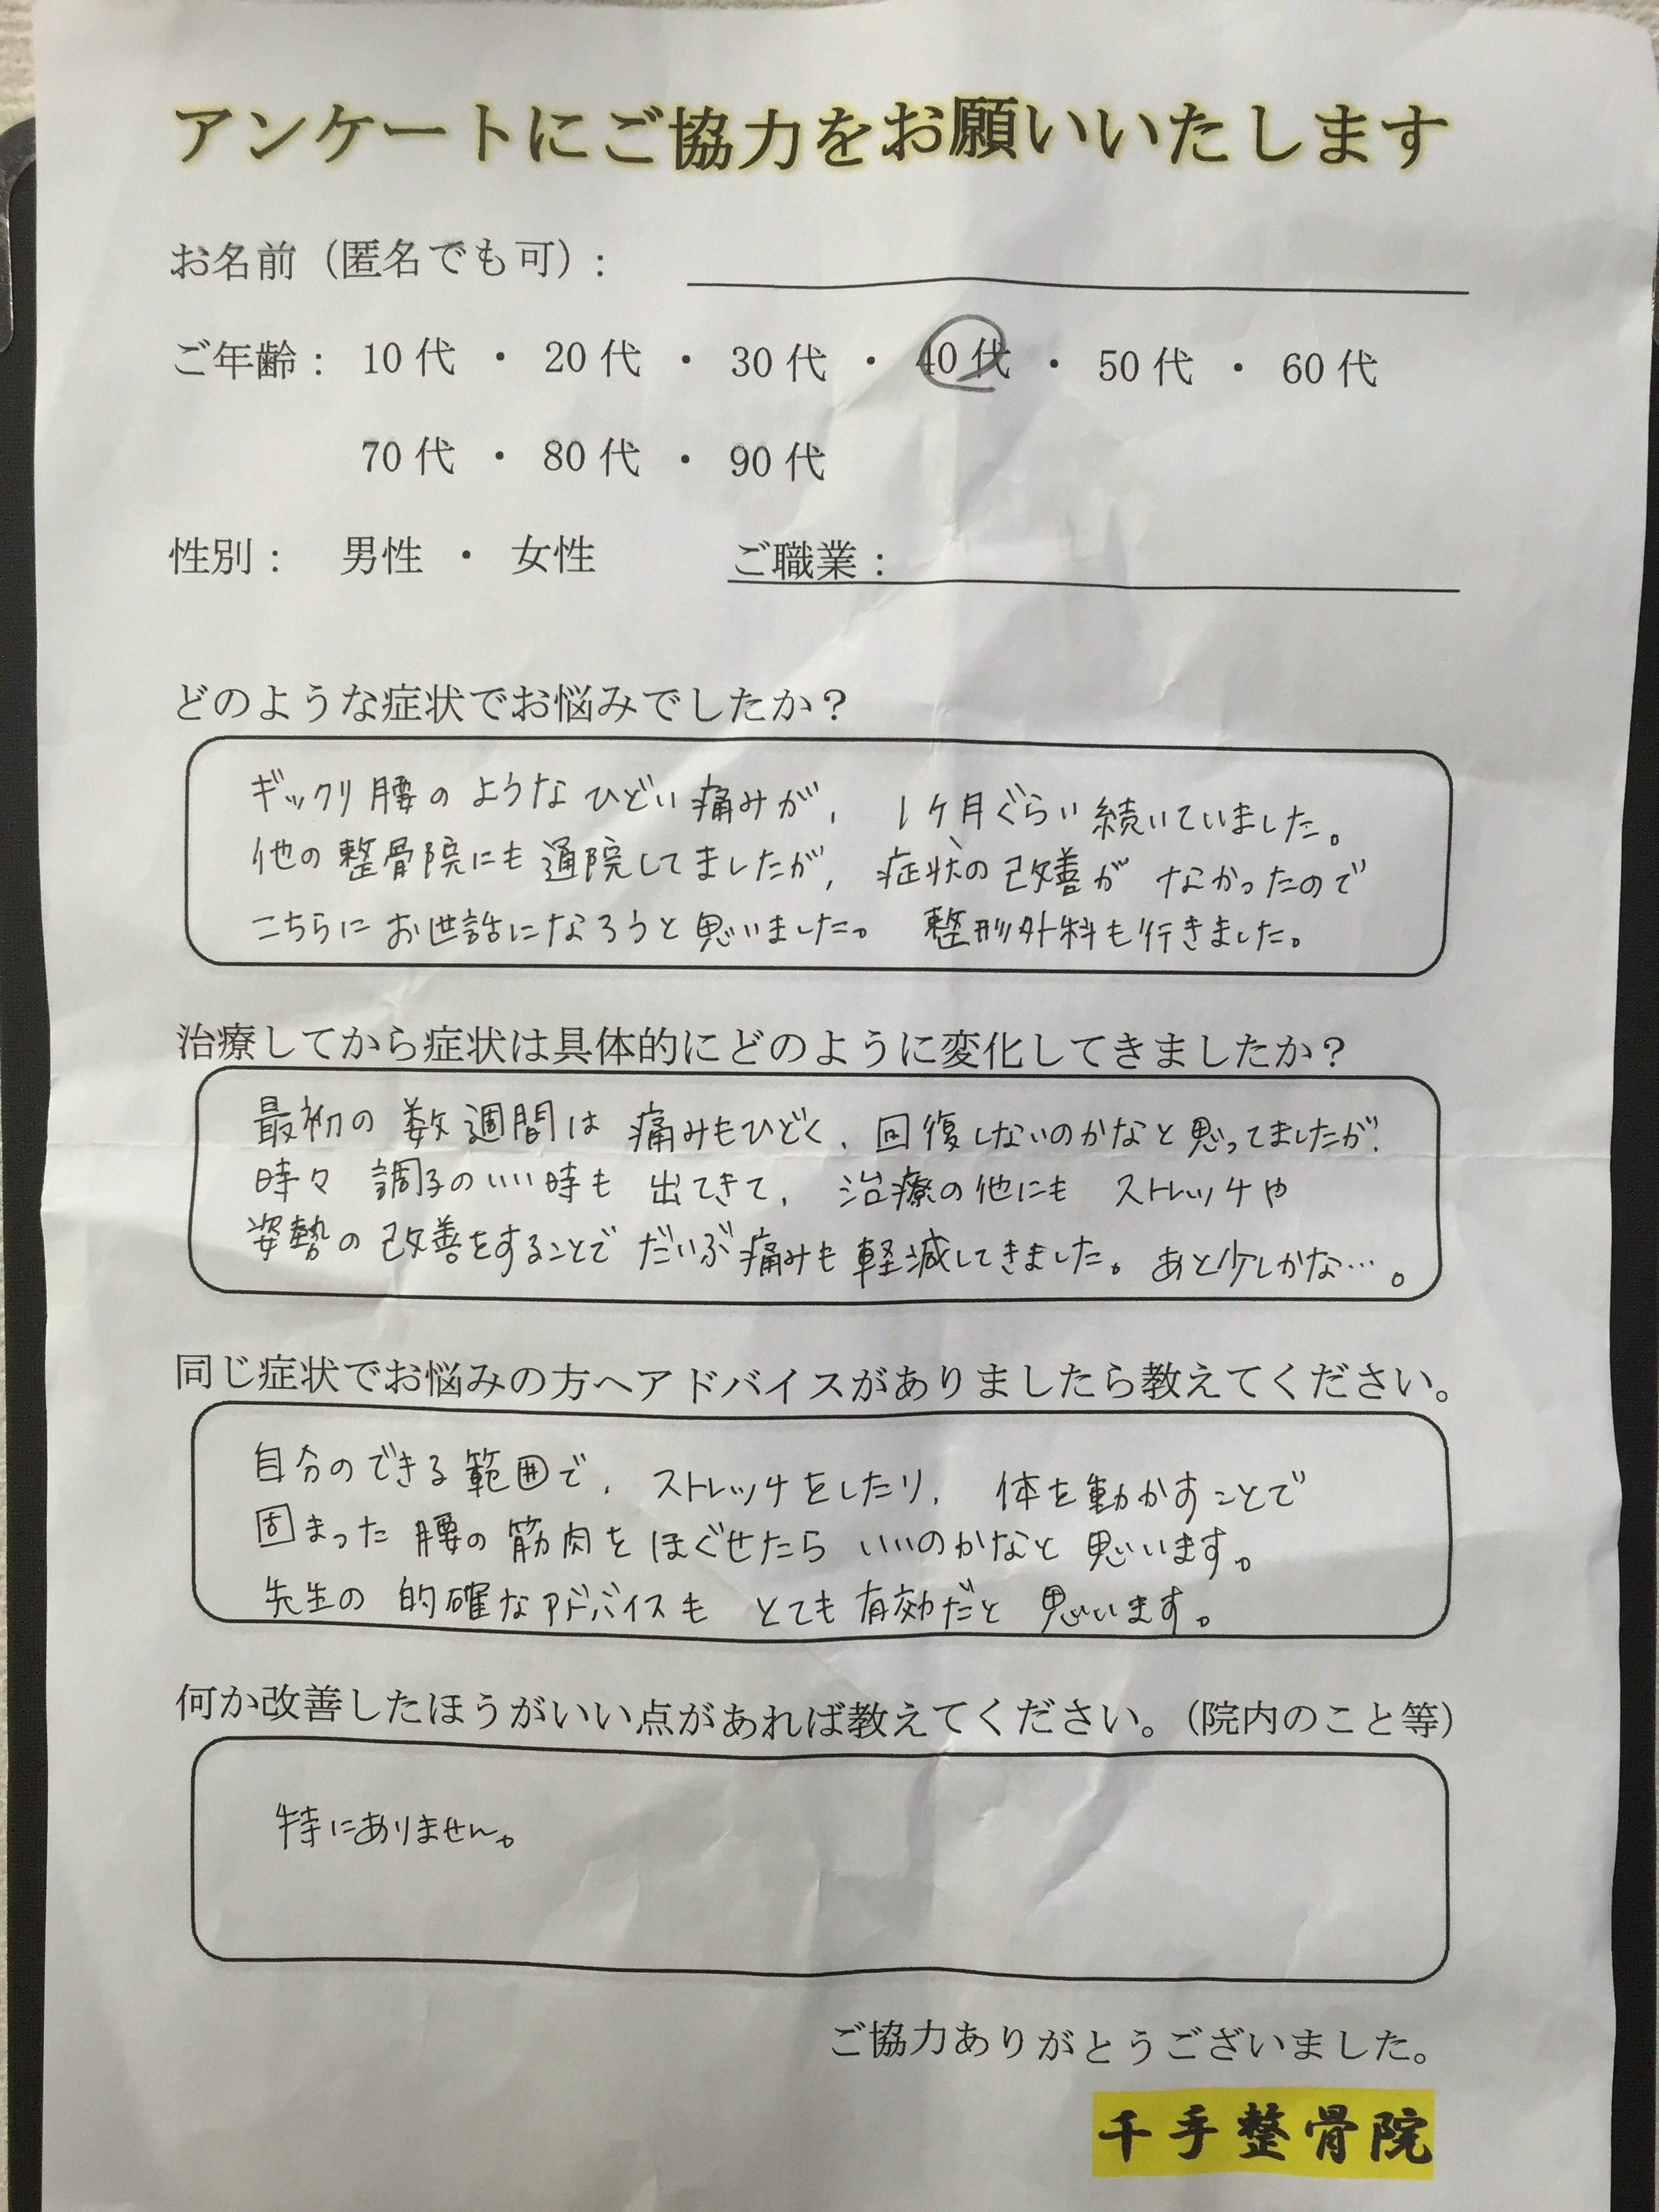 アンケートにご協力をお願いいたします
お名前（匿名でも可）：
ご年齢： 10代 ・ 20代 ・ 30代 ・ 40代 ・ 50代 ・ 60代
70代 ・ 80代 ・ 90代
性別： 男性 ・ 女性 ご職業：
どのような症状でお悩みでしたか？
ギックリ腰のようなひどい痛みが、1ヶ月ぐらい続いていました。
他の整骨院にも通院してましたが、症状の改善がなかったので
こちらにお世話になろうと思いました。整形外科も行きました。
治療してから症状は具体的にどのように変化してきましたか？
最初の数週間は痛みもひどく、回復しないのかなと思ってましたが、
時々調子のいい時も出てきて、治療の他にもストレッチや
姿勢の改善をすることでだいぶ痛みも軽減してきました。あと少しかな…。
同じ症状でお悩みの方へアドバイスがありましたら教えてください。
自分のできる範囲で、ストレッチをしたり、体を動かすことで
固まった腰の筋肉をほぐせたらいいのかなと思います。
先生の的確なアドバイスもとても有効だと思います。
何か改善したほうがいい点があれば教えてください。（院内のこと等）
特にありません。
ご協力ありがとうございました。
千手整骨院